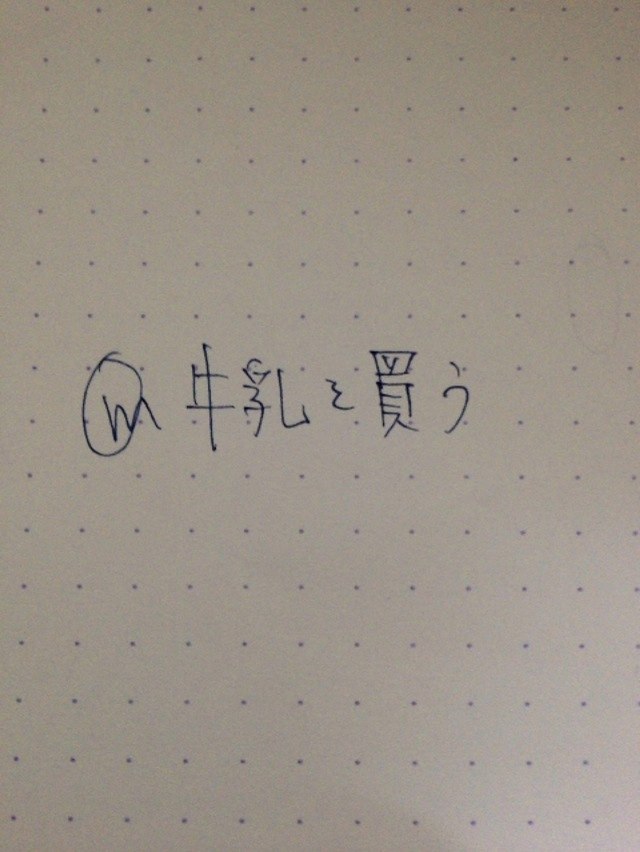 ⓜ 牛乳を買う